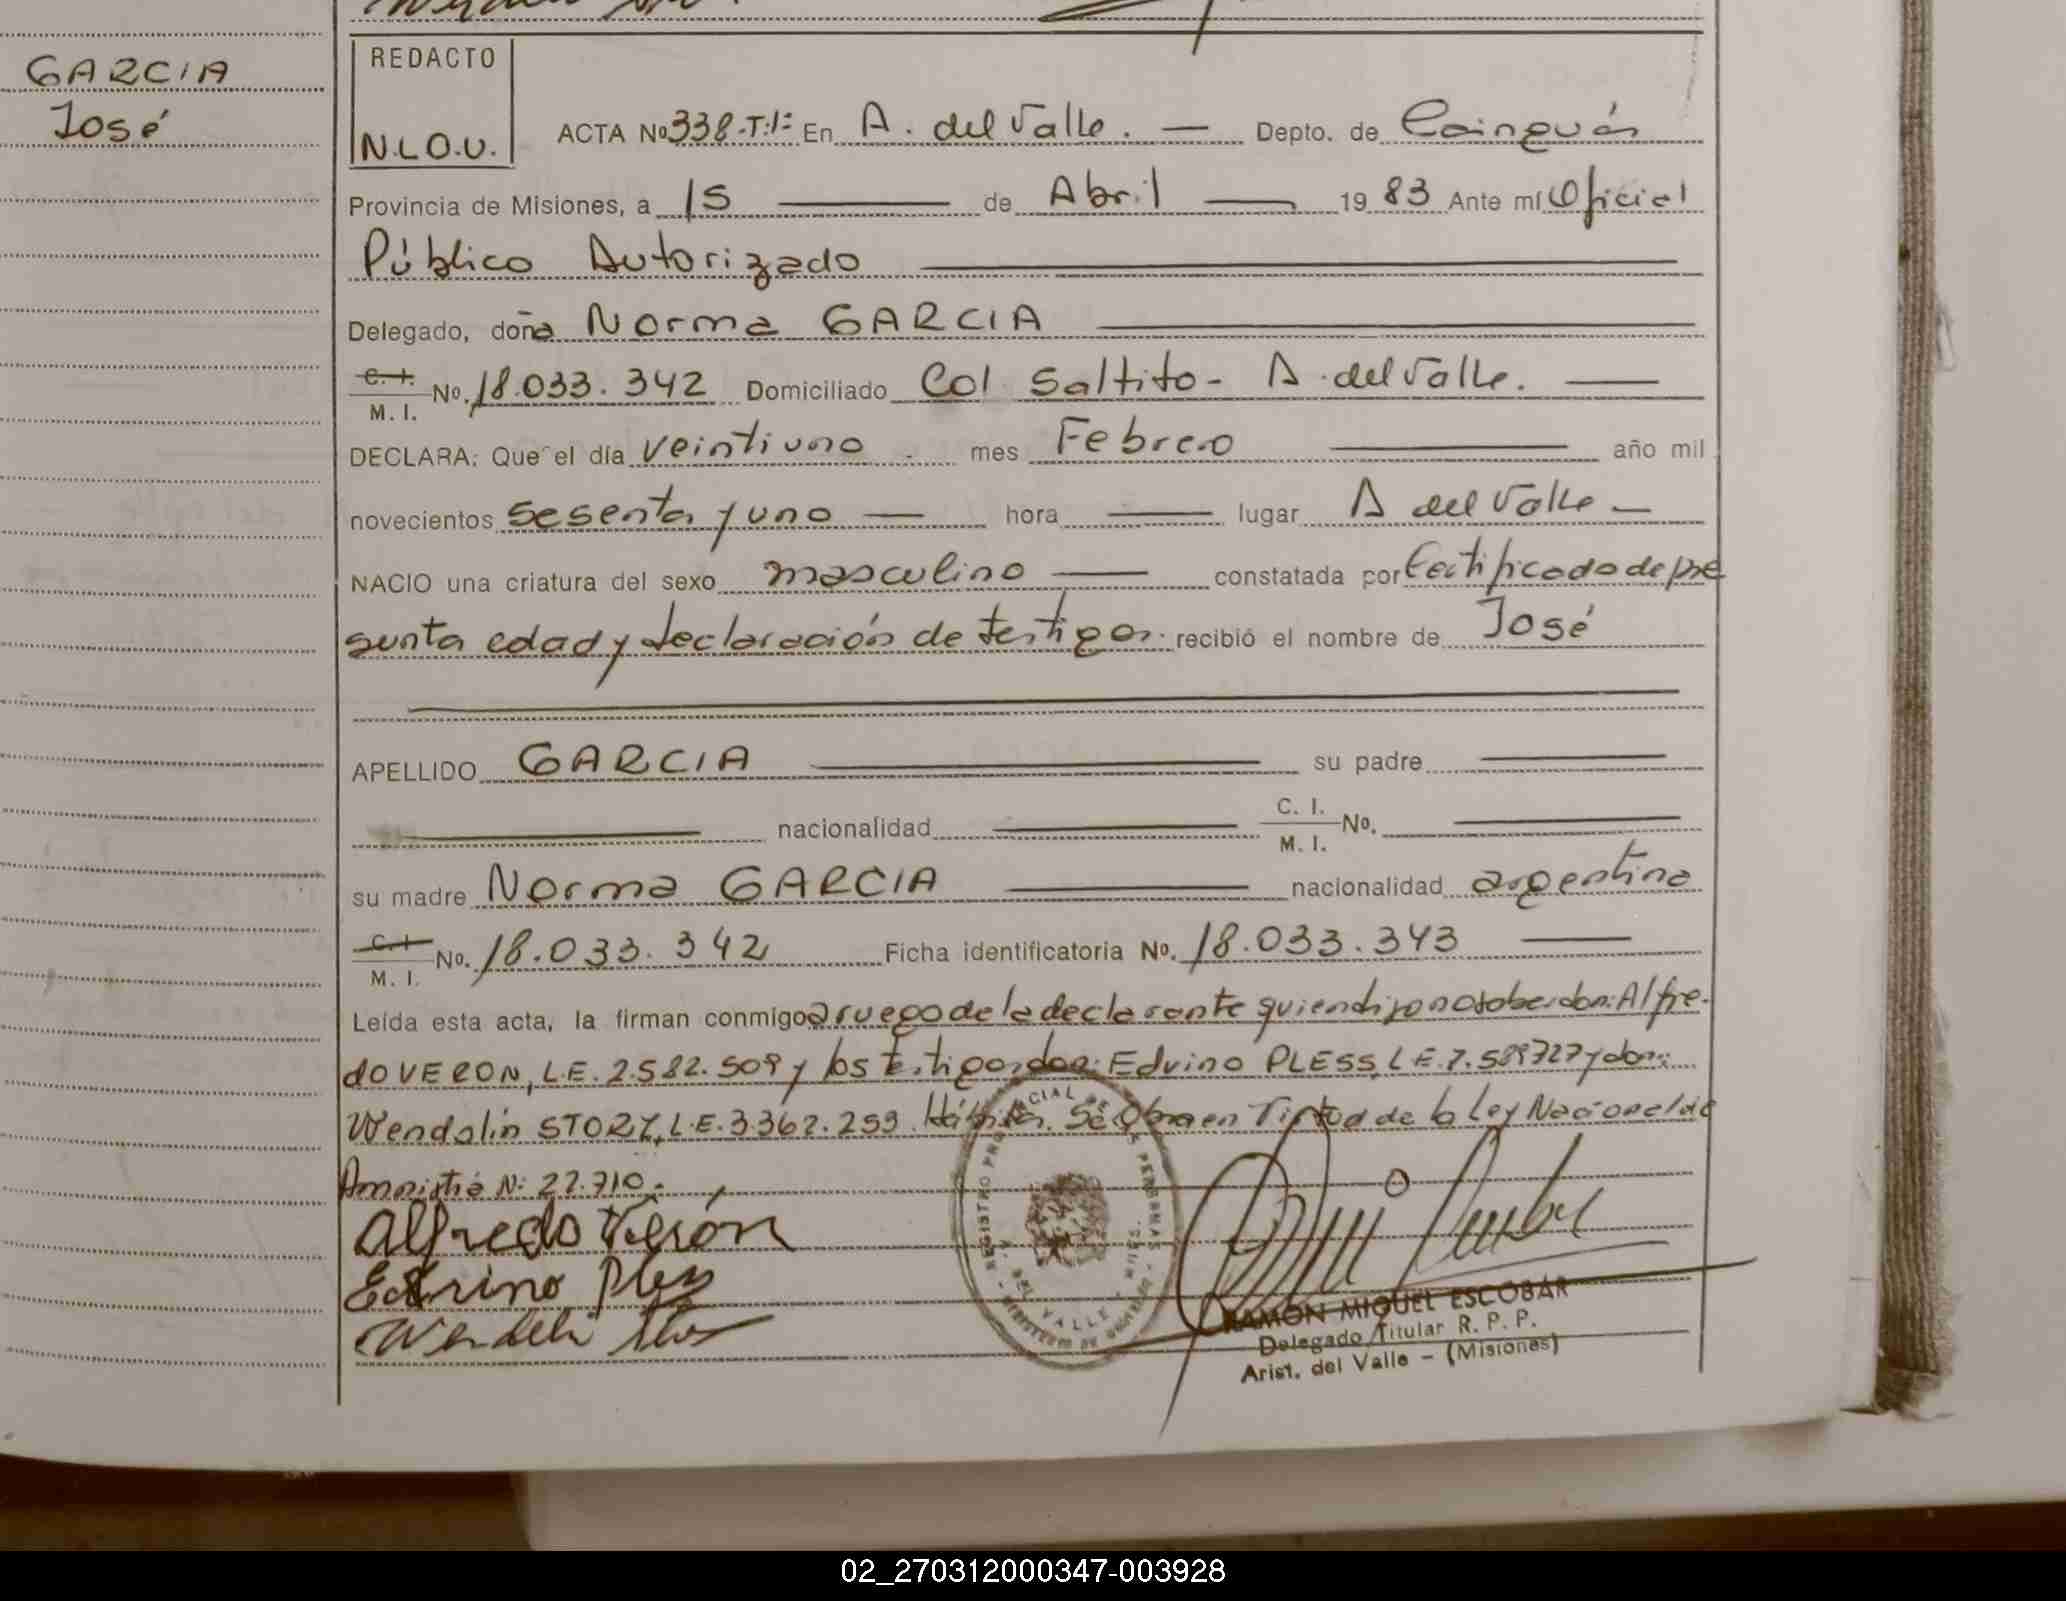 GARCIA
José
REDACTO
N.L.O.U.
ACTA No 338-T:1: En A. del Valle. — Depto. de Cainguás
Provincia de Misiones, a 15 — de Abril — 1983 Ante mí Oficial
Público Autorizado
Delegado, doña Norma GARCIA
C. I. M. I. No. 18.033.342 Domiciliado Col Saltito - A. del Valle. —
DECLARA: Que el día veintiuno mes Febrero — año mil
novecientos sesenta y uno — hora — lugar A del Valle —
NACIO una criatura del sexo masculino — constatada por Certificado de pre
sunta edad y declaración de testigos. recibió el nombre de José
APELLIDO GARCIA — su padre —
— nacionalidad — C. I. M. I. No. —
su madre Norma GARCIA — nacionalidad argentina
C. I. M. I. No. 18.033.342 Ficha identificatoria No. 18.033.343 —
Leída esta acta, la firman conmigo a ruego de la declarante quien dijo no saber don: Alfre-
do VERON, L.E. 2.582.509 y los testigos don: Edvino PLESS, L.E. 7.589727 y don:
Wendolin STORZ, L.E. 3362.259. Hábiles. Se Obra en Virtud de la Ley Nacional de
Amnistia N: 22.710.-
Alfredo Verón
Edvino Pless
REGISTRO PROVINCIAL DE LAS PERSONAS
A. DEL VALLE
RAMON MIGUEL ESCOBAR
Delegado Titular R. P. P.
Arist. del Valle - (Misiones)
02_270312000347-003928